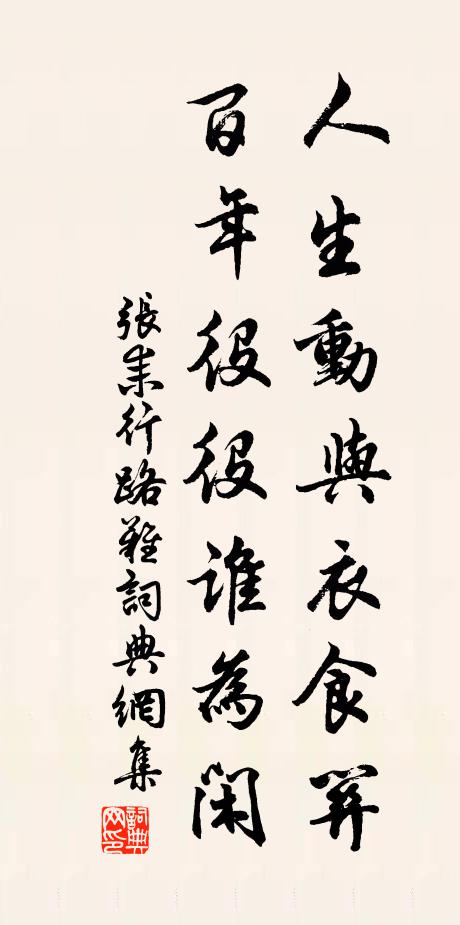 人生動與衣食關
百年役役誰為閑
張耒行路難詞典網集
詞典网印